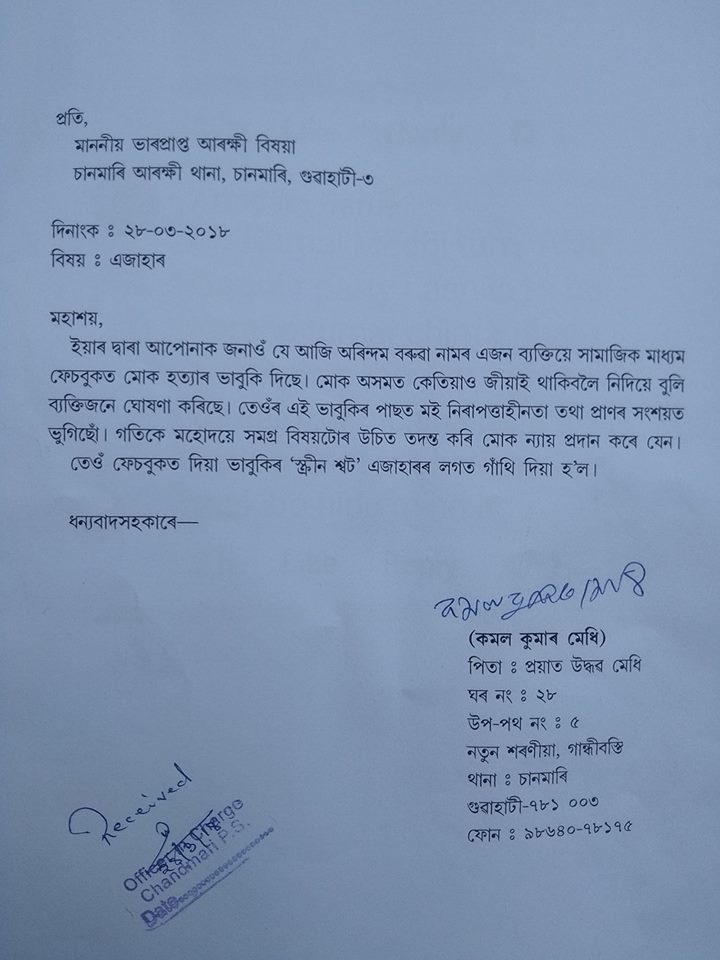 প্ৰতি,
মাননীয় ভাৰপ্ৰাপ্ত আৰক্ষী বিষয়া
চানমাৰি আৰক্ষী থানা, চানমাৰি, গুৱাহাটী-৩
দিনাংক : ২৮-০৩-২০১৮
বিষয় : এজাহাৰ
মহাশয়,
ইয়াৰ দ্বাৰা আপোনাক জনাওঁ যে আজি অৰিন্দম বৰুৱা নামৰ এজন ব্যক্তিয়ে সামাজিক মাধ্যম
ফেচবুকত মোক হত্যাৰ ভাবুকি দিছে। মোক অসমত কেতিয়াও জীয়াই থাকিবলৈ নিদিয়ে বুলি
ব্যক্তিজনে ঘোষণা কৰিছে। তেওঁৰ এই ভাবুকিৰ পাছত মই নিৰাপত্তাহীনতা তথা প্ৰাণৰ সংশয়ত
ভুগিছোঁ। গতিকে মহোদয়ে সমগ্ৰ বিষয়টোৰ উচিত তদন্ত কৰি মোক ন্যায় প্ৰদান কৰে যেন।
তেওঁ ফেচবুকত দিয়া ভাবুকিৰ ‘স্ক্ৰীন শ্বট’ এজাহাৰৰ লগত গাঁথি দিয়া হ’ল।
ধন্যবাদসহকাৰে—
কমল কুমাৰ মেধি
(কমল কুমাৰ মেধি)
পিতা : প্ৰয়াত উদ্ধৱ মেধি
ঘৰ নং : ২৮
উপ-পথ নং : ৫
নতুন শৰণীয়া, গান্ধীবস্তি
থানা : চানমাৰি
গুৱাহাটী-৭৮১ ০০৩
ফোন : ৯৮৬৪০-৭৮১৭৫
Received
Officer In Charge
Chandmari P.S.
Date